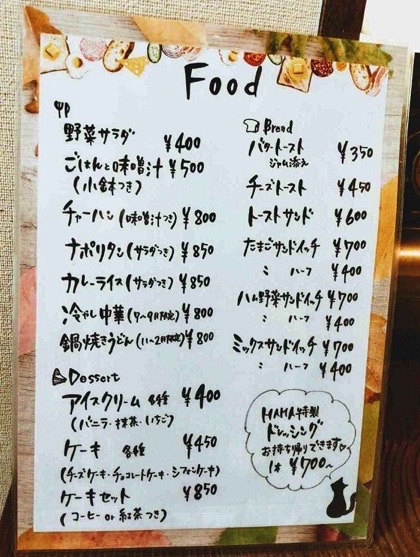 Food
野菜サラダ ¥400
ごはんと味噌汁 ¥500
(小鉢つき)
チャーハン(味噌汁つき) ¥800
ナポリタン(サラダつき) ¥850
カレーライス(サラダつき) ¥850
冷やし中華(7~9月限定) ¥800
鍋焼きうどん(11~2月限定) ¥800
Dessert
アイスクリーム 各種 ¥400
(バニラ・抹茶・いちご)
ケーキ 各種 ¥450
(チーズケーキ・チョコレートケーキ・シフォンケーキ)
ケーキセット ¥850
(コーヒー or 紅茶つき)
Bread
バタートースト ¥350
ジャム添え
チーズトースト ¥450
トーストサンド ¥600
たまごサンドイッチ ¥700
〃 ハーフ ¥400
ハム野菜サンドイッチ ¥700
〃 ハーフ ¥400
ミックスサンドイッチ ¥700
〃 ハーフ ¥400
MAMA特製
ドレッシング
お持ち帰りできます
1本 ¥700~